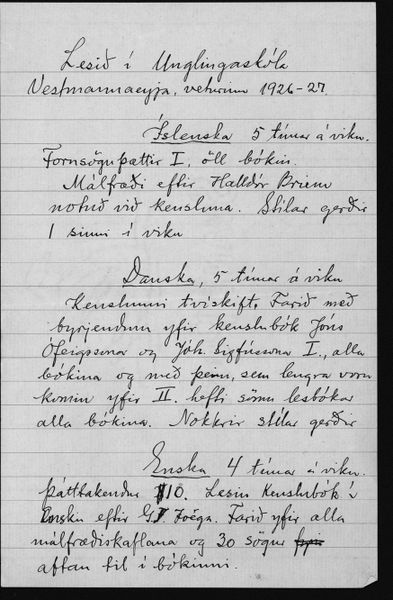 Lesið í Unglingaskóla
Vestmannaeyja, veturinn 1926-27.
Íslenska 5 tímar á viku.
Fornsöguþættir I, öll bókin.
Málfræði eftir Halldór Briem
notuð við kensluna. Stílar gerðir
1 sinni í viku
Danska, 5 tímar á viku
Kenslunni tvískift. Farið með
byrjendum yfir kenslubók Jóns
Ófeigssonar og Jóh. Sigfússonar I., alla
bókina og með þeim, sem lengra voru
komin yfir II. hefti sömu lesbókar
alla bókina. Nokkrir stílar gerðir
Enska 4 tímar á viku.
Þátttakendur 10. Lesin Kenslubók í
Ensku eftir G. Zoëga. Farið yfir alla
málfræðiskaflana og 30 sögur
aftan til í bókinni.